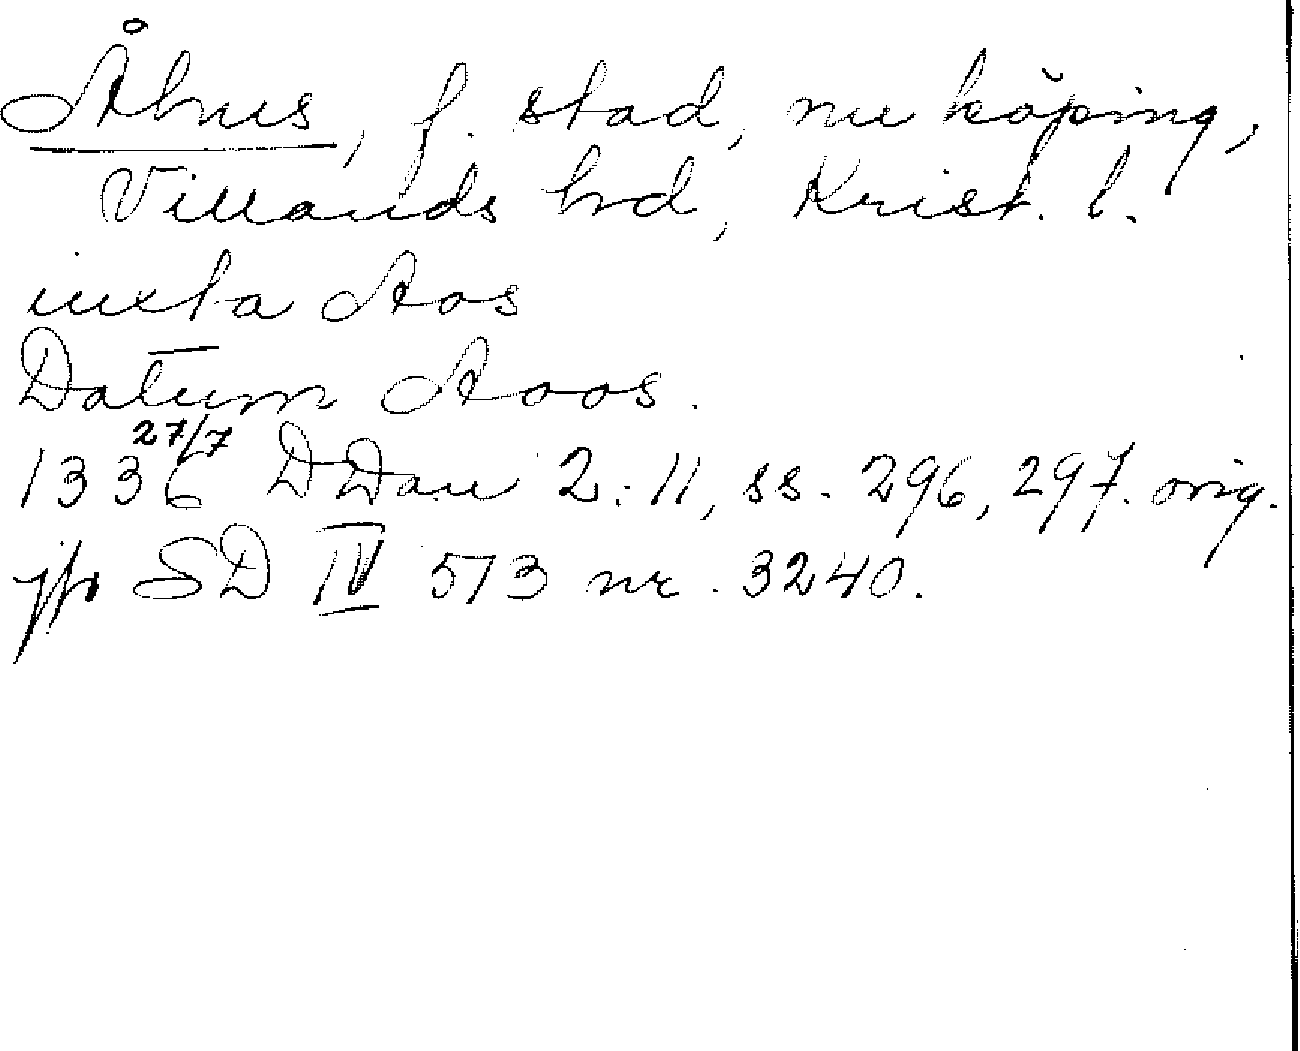 Åhus, f. stad, nu köping,
Villands hd, Krist. l.
iuxta Aos
Datum Aoos.
1336 27/7 DDan 2:11, ss. 296, 297. orig.
jfr SD IV 573 nr. 3240.